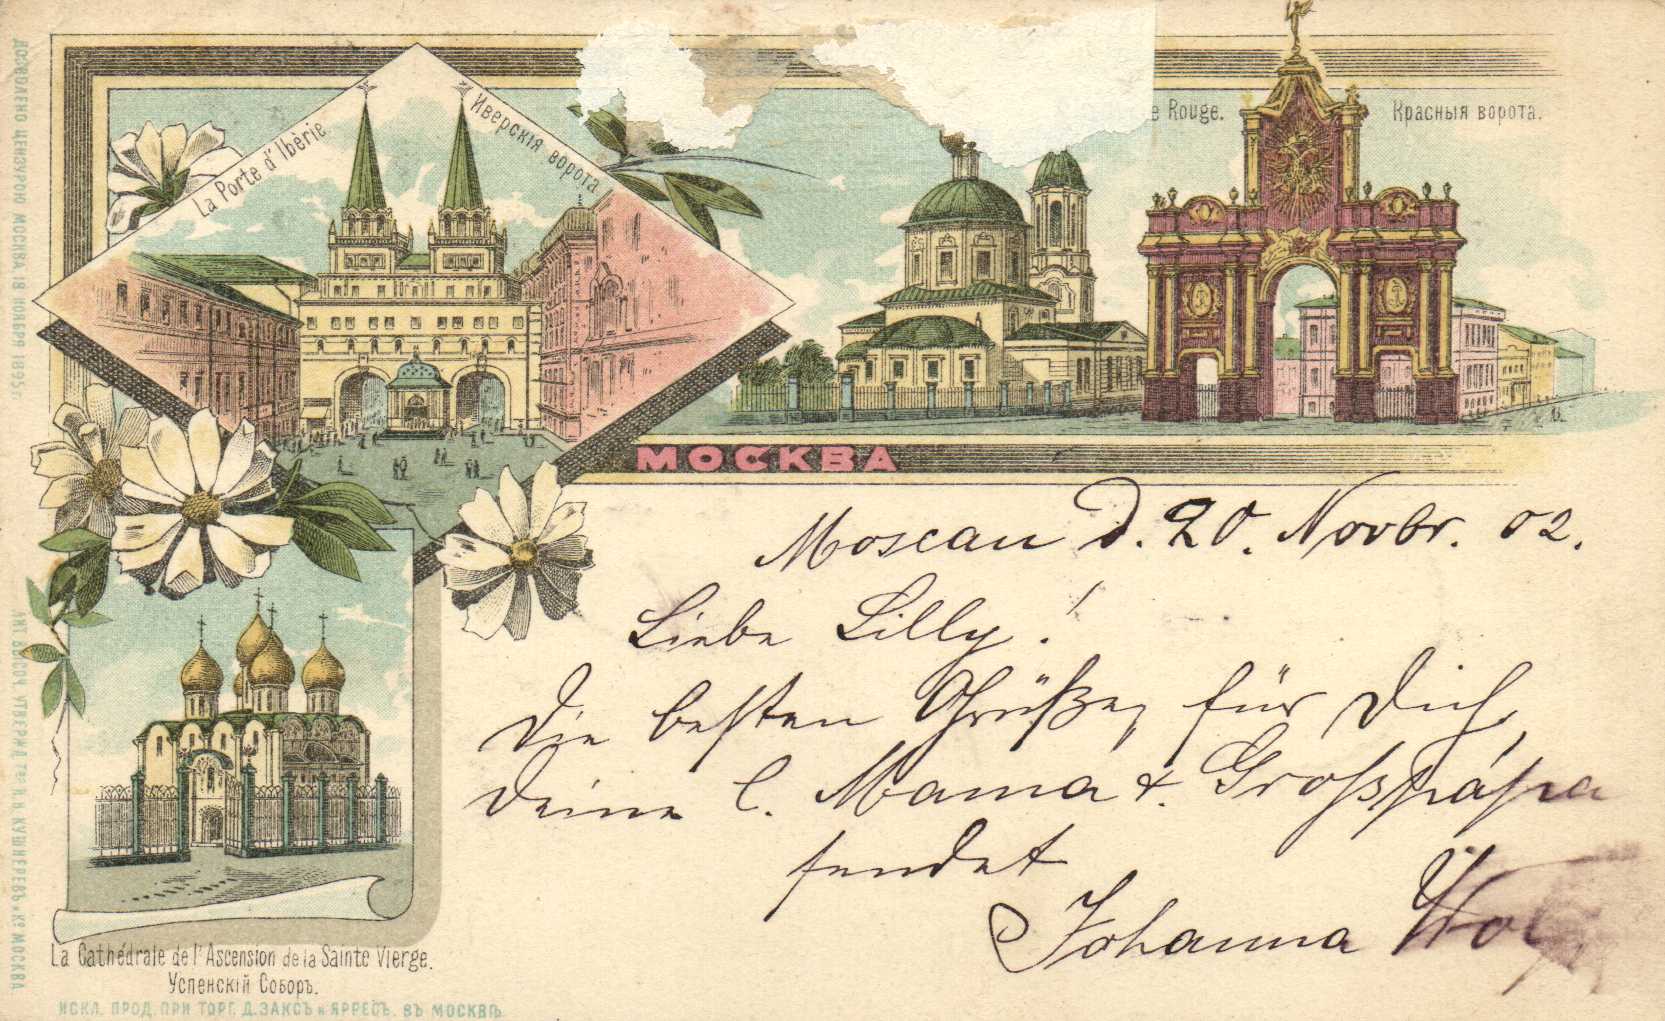 ДОЗВОЛЕНО ЦЕНЗУРОЮ МОСКВА 18 НОЯБРЯ 1895 г.
La Porte d'Ibèrie
Иверскія ворота
e Rouge.
Красныя ворота.
МОСКВА
Moscau d. 20. Novbr. 02.
Liebe Lilly!
Die besten Grüße, für Dich,
Deine l. Mama & Grosspápa
sendet
Johanna
La Cathédrale de l'Ascension de la Sainte Vierge.
Успенскій Соборъ.
ЛИТ. ВЫСОЧ. УТВЕРЖД. Т-ва И. Н. КУШНЕРЕВЪ и Ко МОСКВА
ИСКЛ. ПРОД. ПРИ ТОРГ. Д. ЗАКСЪ и ЯРРЕСЪ. ВЪ МОСКВѢ.